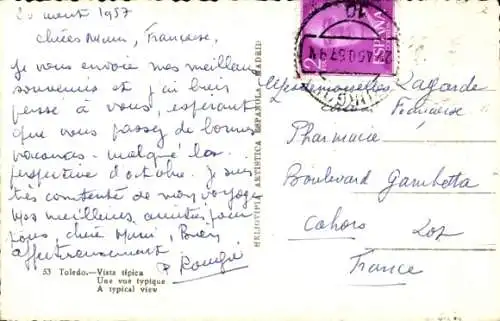 20 août 1957
chères Mimi, Françoise,
Je vous envoie mes meilleurs
souvenirs et j'ai bien
pensé à vous, espérant
que vous passez de bonnes
vacances - malgré la
perspective d'octobre. Je suis
très contente de mon voyage
Mes meilleures amitiés pour
vous, chère Mimi, Bien
affectueusement
53 Toledo.—Vista típica
Une vue typique
A typical view
HELIOTIPIA ARTISTICA ESPAÑOLA - MADRID
ESPAÑA
Mesdemoiselles Lagarde
Françoise
Pharmacie
Boulevard Gambetta
Cahors Lot
France